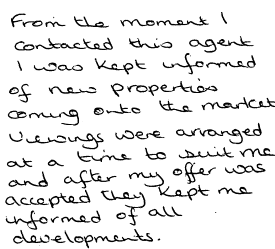 From the moment I
contacted this agent
I was kept informed
of new properties
coming onto the market
Viewings were arranged
at a time to suit me
and after my offer was
accepted they kept me
informed of all
developments.